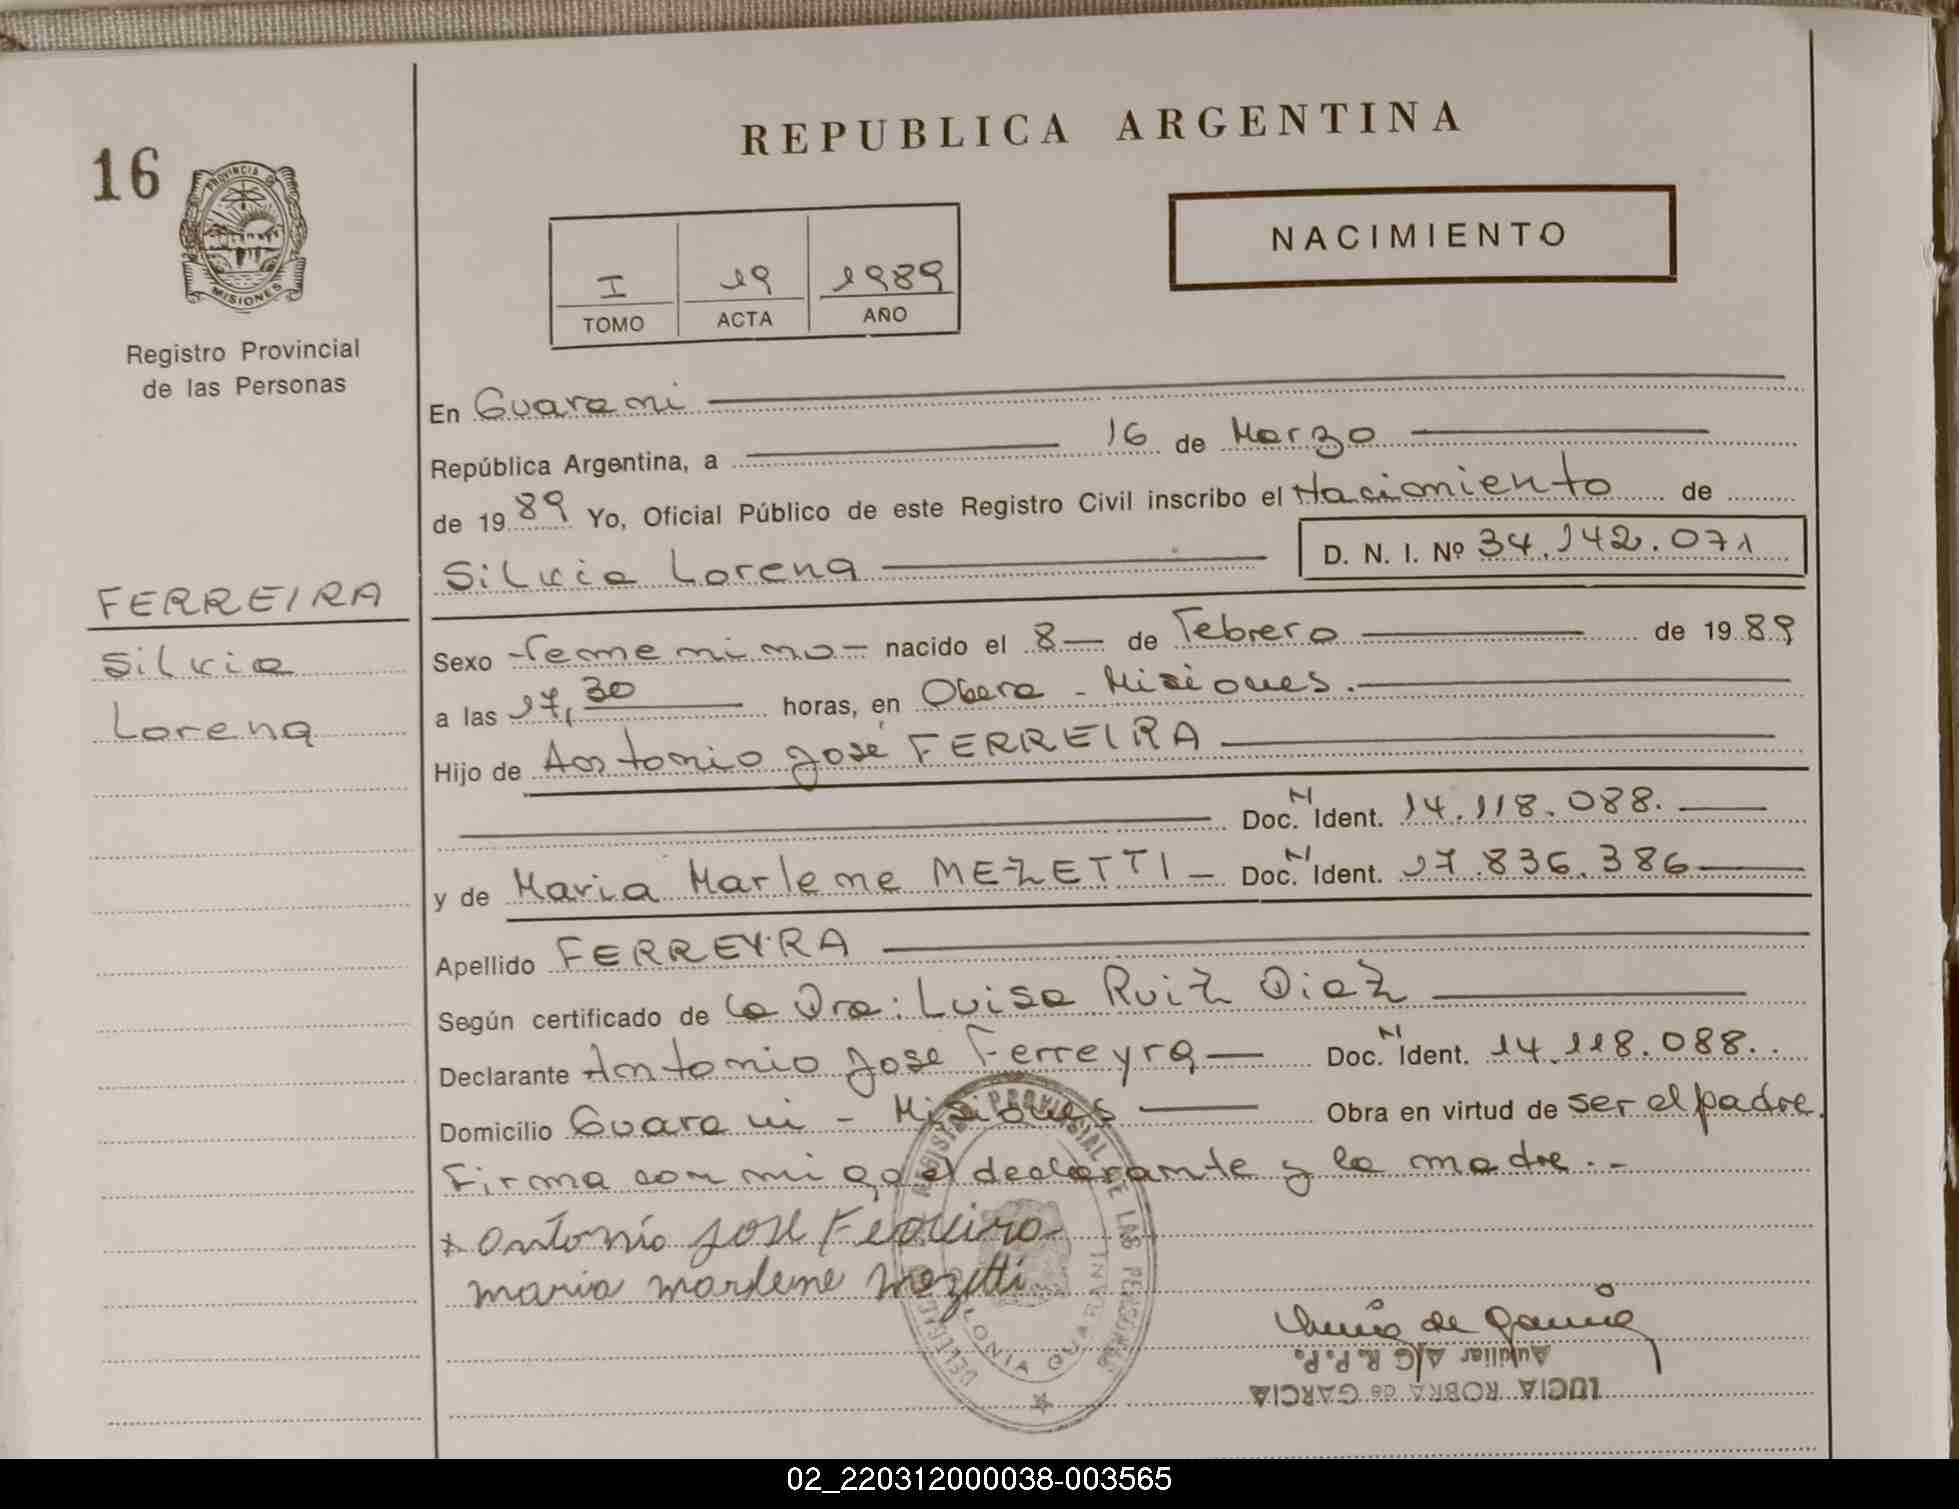 REPUBLICA ARGENTINA
16
PROVINCIA DE
MISIONES
Registro Provincial
de las Personas
NACIMIENTO
I 19 1989
TOMO ACTA AÑO
En Guarani
República Argentina, a 16 de Marzo
de 1989 Yo, Oficial Público de este Registro Civil inscribo el Nacimiento de
Silvia Lorena D. N. I. Nº 34.142.071
FERREIRA
Silvia
Lorena
Sexo femenino - nacido el 8 - de Febrero de 1989
a las 17,30 horas, en Obera - Misiones.
Hijo de Antonio José FERREIRA
Doc. N Ident. 14.118.088.
y de Maria Marlene MEZETTI - Doc. N Ident. 17.836.386
Apellido FERREYRA
Según certificado de la Dra: Luisa Ruiz Diaz
Declarante Antonio Jose Ferreyra Doc. N Ident. 14.118.088..
Domicilio Guarani - Misiones Obra en virtud de ser el padre.
Firma con migo el declarante y la madre.-
Antonio José Ferreira
maria marlene Mezetti
REGISTRO PROVINCIAL DE LAS PERSONAS
DELEGACION
COLONIA GUARANI
Auxiliar A/C R.P.P.
LUCIA ROBRA de GARCIA
02_220312000038-003565